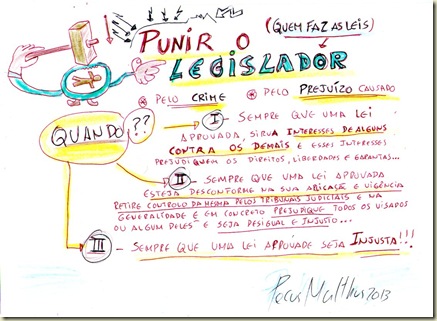 PUNIR O
(QUEM FAZ AS LEIS)
LEGISLADOR
* PELO CRIME * PELO PREJUÍZO CAUSADO
QUANDO??
I - SEMPRE QUE UMA LEI
APROVADA, SIRVA INTERESSES DE ALGUNS
CONTRA OS DEMAIS E ESSES INTERESSES
PREJUDIQUEM OS DIREITOS, LIBERDADES E GARANTIAS...
II - SEMPRE QUE UMA LEI APROVADA
ESTEJA DESCONFORME NA SUA APLICAÇÃO E VIGÊNCIA
RETIRE CONTROLO DA MESMA PELOS TRIBUNAIS JUDICIAIS E NA
GENERALIDADE E EM CONCRETO PREJUDIQUE TODOS OS VISADOS
OU ALGUM DELES E SEJA DESIGUAL E INJUSTO...
III - SEMPRE QUE UMA LEI APROVADE SEJA INJUSTA!!!
2013